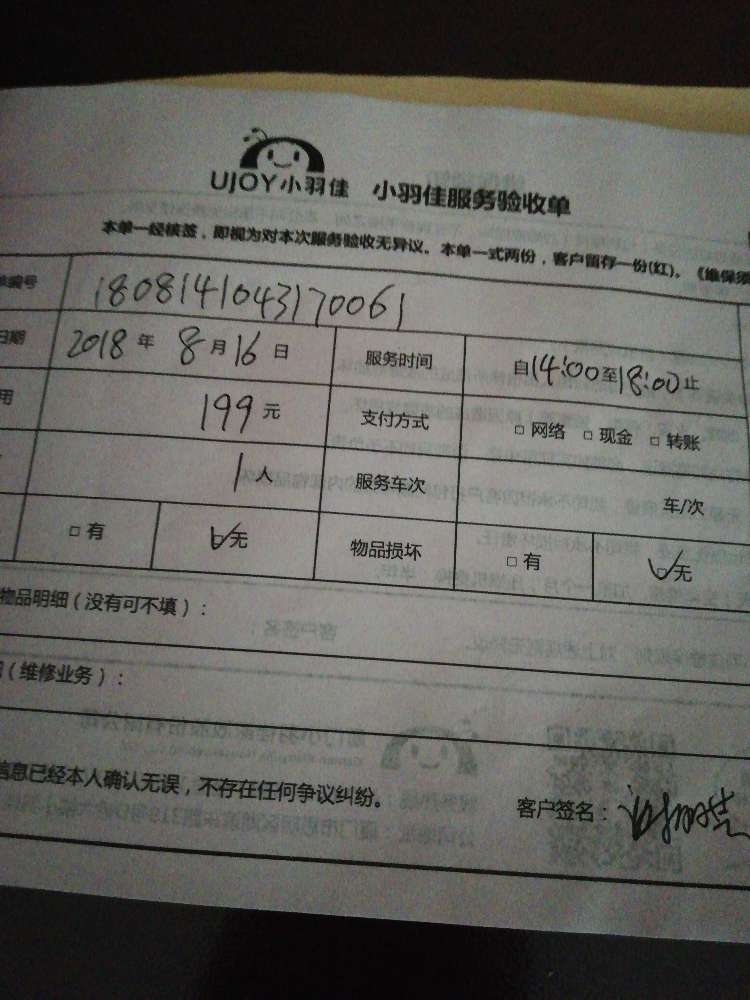 UJOY小羽佳 小羽佳服务验收单
本单一经核签，即视为对本次服务验收无异议。本单一式两份，客户留存一份(红)。《维保须
编号 1808141043170061
日期 2018 年 8 月 16 日 服务时间 自14:00至18:00止
用 199 元 支付方式 □ 网络 □ 现金 □ 转账
1 人 服务车次 车/次
□ 有 ☑无 物品损坏 □ 有 ☑无
物品明细（没有可不填）：
（维修业务）：
信息已经本人确认无误，不存在任何争议纠纷。 客户签名：